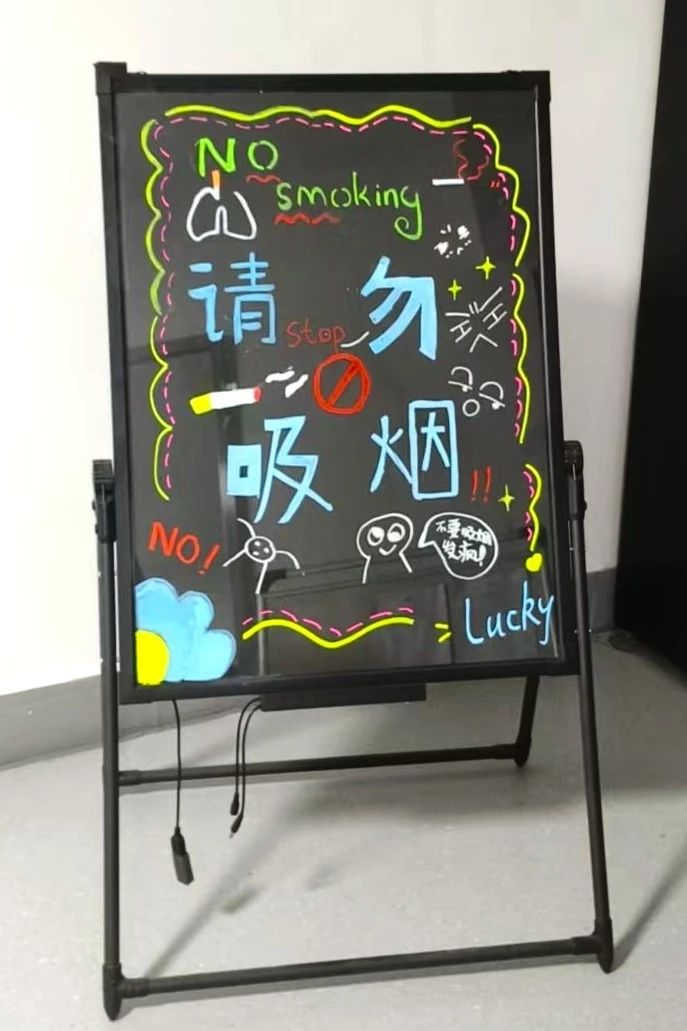 NO
smoking
请勿
stop
吸烟!!
NO!
不要吸烟
发疯!
Lucky